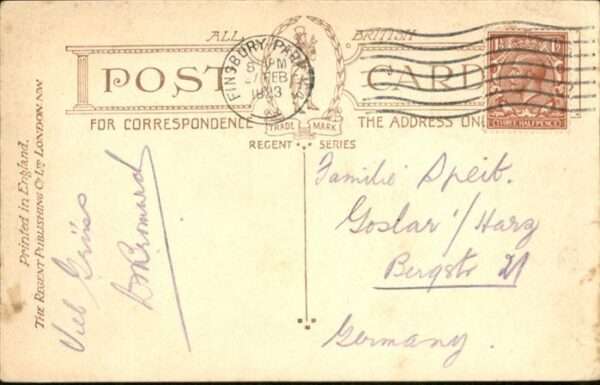 ALL BRITISH
POST CARD
FINSBURY PARK
PM
7 FEB
1923
THREE HALFPENCE
FOR CORRESPONDENCE
THE ADDRESS ONL
TRADE MARK
REGENT SERIES
Printed in England.
THE REGENT PUBLISHING Co LTD LONDON. NW
Viel Grüss
Familie Speit.
Goslar / Harz
Bergstr
Germany.